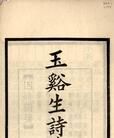 玉谿生詩